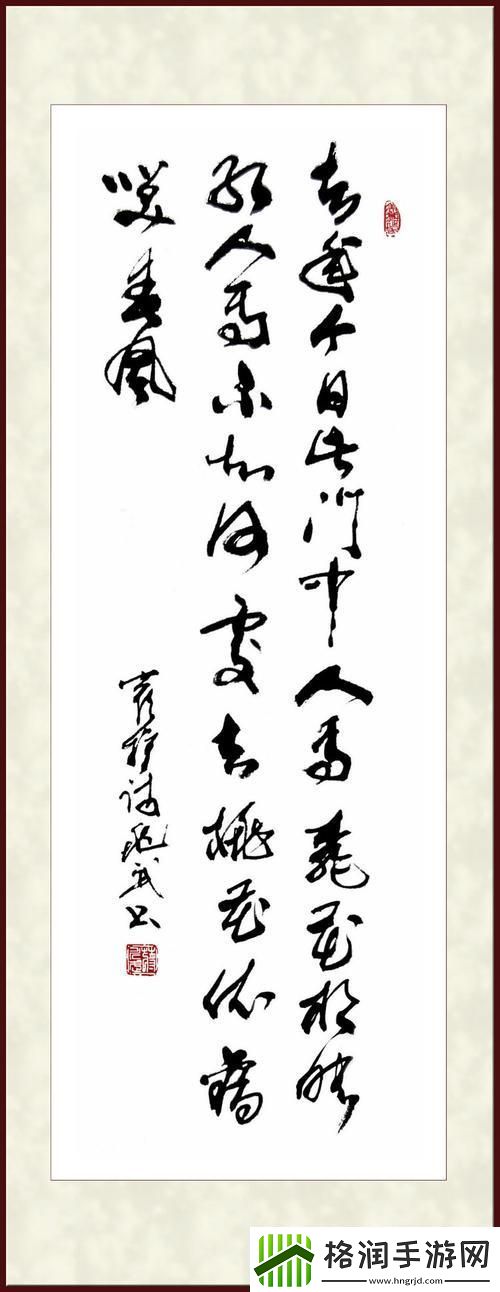 去年今日此门中人面桃花相映
红人面不知何處去桃花依舊
笑春風
崔護诗
书
格润手游网
www.hngrjd.com